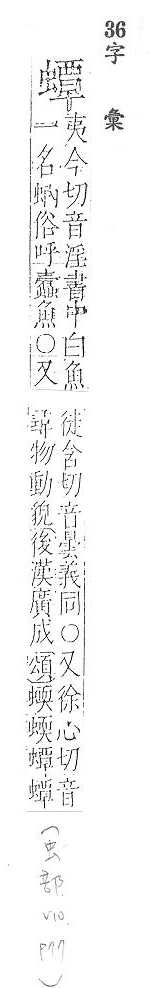 36字彙
蟫
夷今切音淫書中白魚
一名蛃俗呼蠹魚○又
徒含切音曇義同○又徐心切音
尋物動貌後漢廣成頌蝡蝡蟫蟫
(虫部 V10. P77)